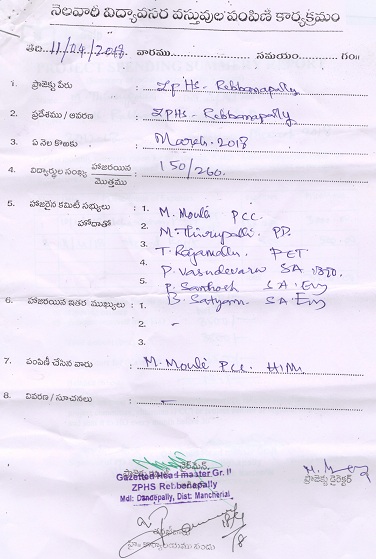 నెలవారీ విద్యావసర వస్తువుల పంపిణీ కార్యక్రమం
తేది 11/04/2018 వారము సమయం గం॥
1. ప్రాజెక్టు పేరు : ZPHS - Rebbanapally
2. ప్రదేశము / ఆవరణ : ZPHS - Rebbanapally
3. ఏ నెల కొఱకు : March - 2018
4. విద్యార్థుల సంఖ్య హాజరయిన మొత్తము : 150/260.
5. హాజరైన కమిటీ సభ్యులు హోదాతో : 1. M. Mouli PCC.
2. M. Thirupathi. PD.
3. T. Rajamallu. PET
4. P. Vasudevarao SA
5. P. Santhosh SA. Eng
6. హాజరయిన ఇతర ముఖ్యులు : 1. B. Satyam SA. Eng
2. -
3.
7. పంపిణీ చేసిన వారు : M. Mouli PCC. H.M.
8. వివరణ / సూచనలు : -
ప్రాజెక్టు ఛైర్మన్,
Gazetted Head master Gr. II
ZPHS Rebbanapally
Mdl: Dandepally, Dist: Mancherial
ప్రాజెక్టు డైరెక్టర్